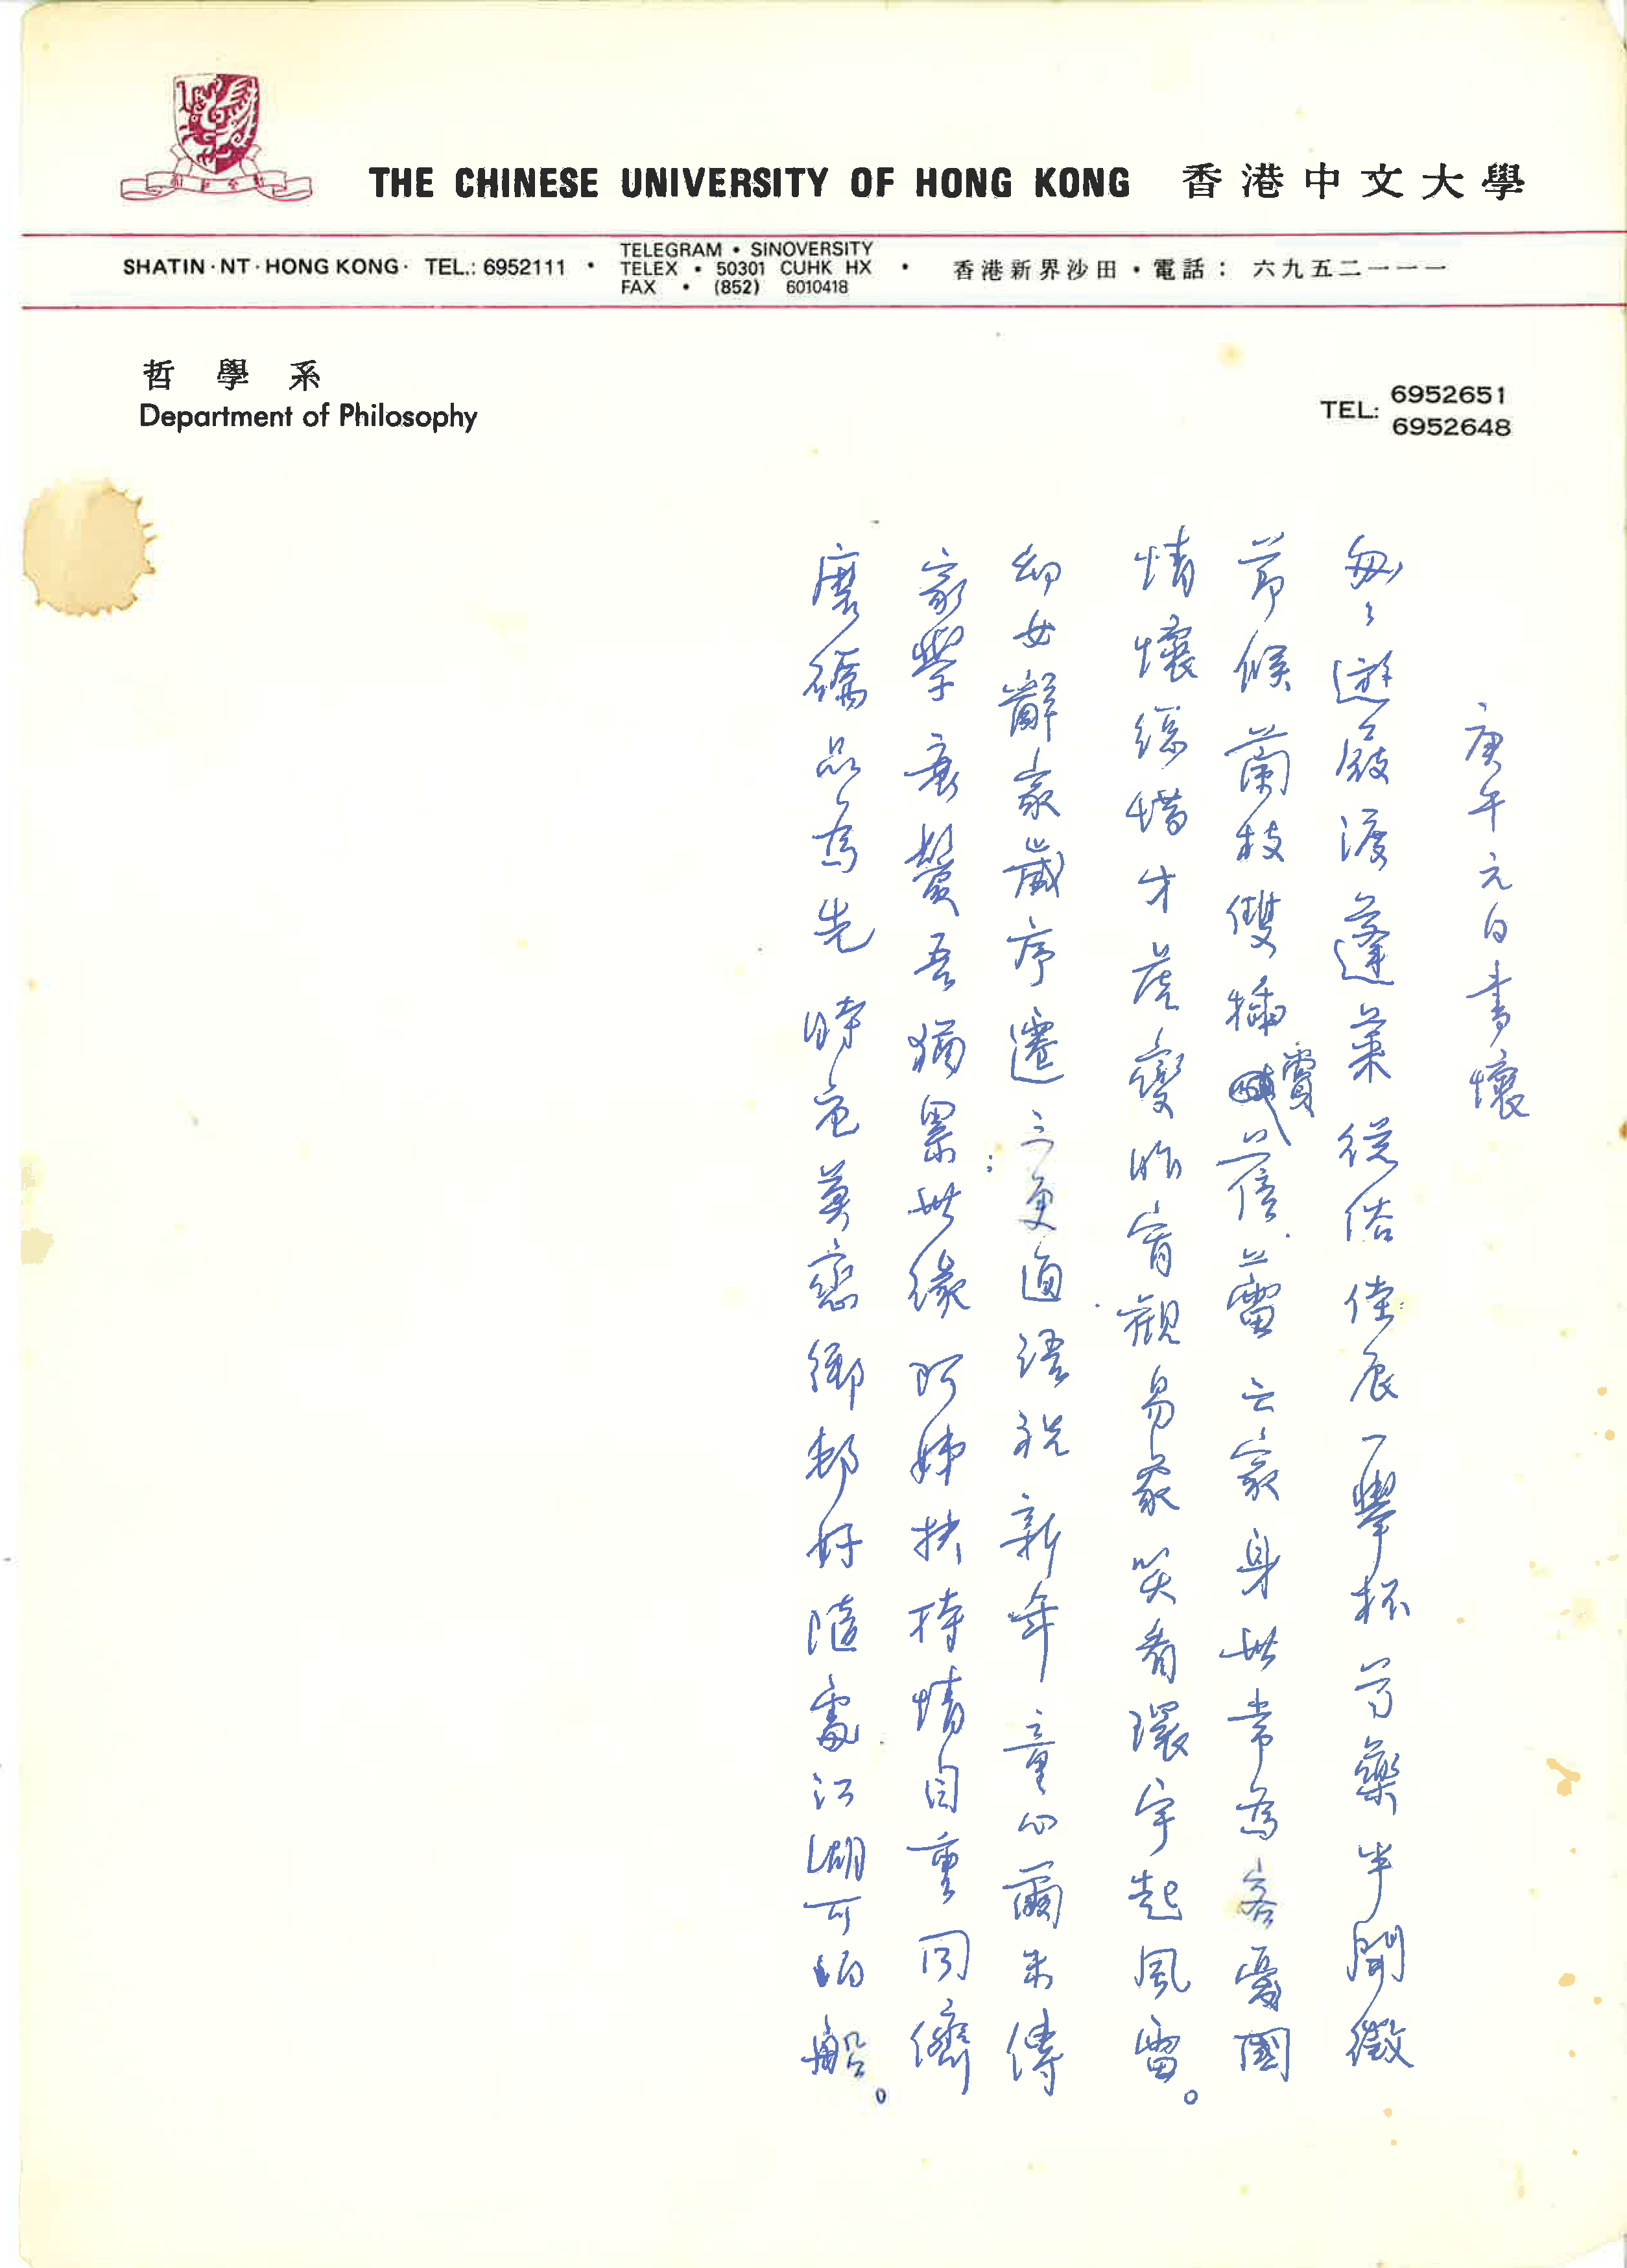 THE CHINESE UNIVERSITY OF HONG KONG 香港中文大學
SHATIN·NT·HONG KONG· TEL.: 6952111 •
TELEGRAM • SINOVERSITY
TELEX • 50301 CUHK HX •
FAX • (852) 6010418
香港新界沙田·電話： 六九五二一一一
哲學系
Department of Philosophy
TEL: 6952651
6952648
庚午元日書懷
匆匆遊屐渡蓬萊 從俗佳辰一舉杯 芍藥半開徵
節候 蘭枝雙插賞蓓蕾 亡家身世常為客 憂國
情懷總惜才 茫變昨宵觀易象 笑看環宇起風雷。
幼女辭家歲序遷 三更通語祝新年 童心爾未傳
家學 衰鬢吾猶累世緣 阿姊扶持情自重 同儕
磨礪品為先 時危莫戀鄉邨好 隨處江湖可泊船。